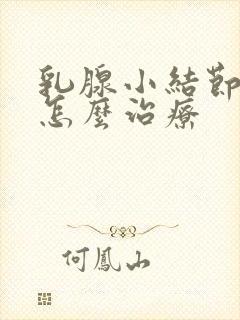 乳腺小結節
怎麼治療
何鳳山